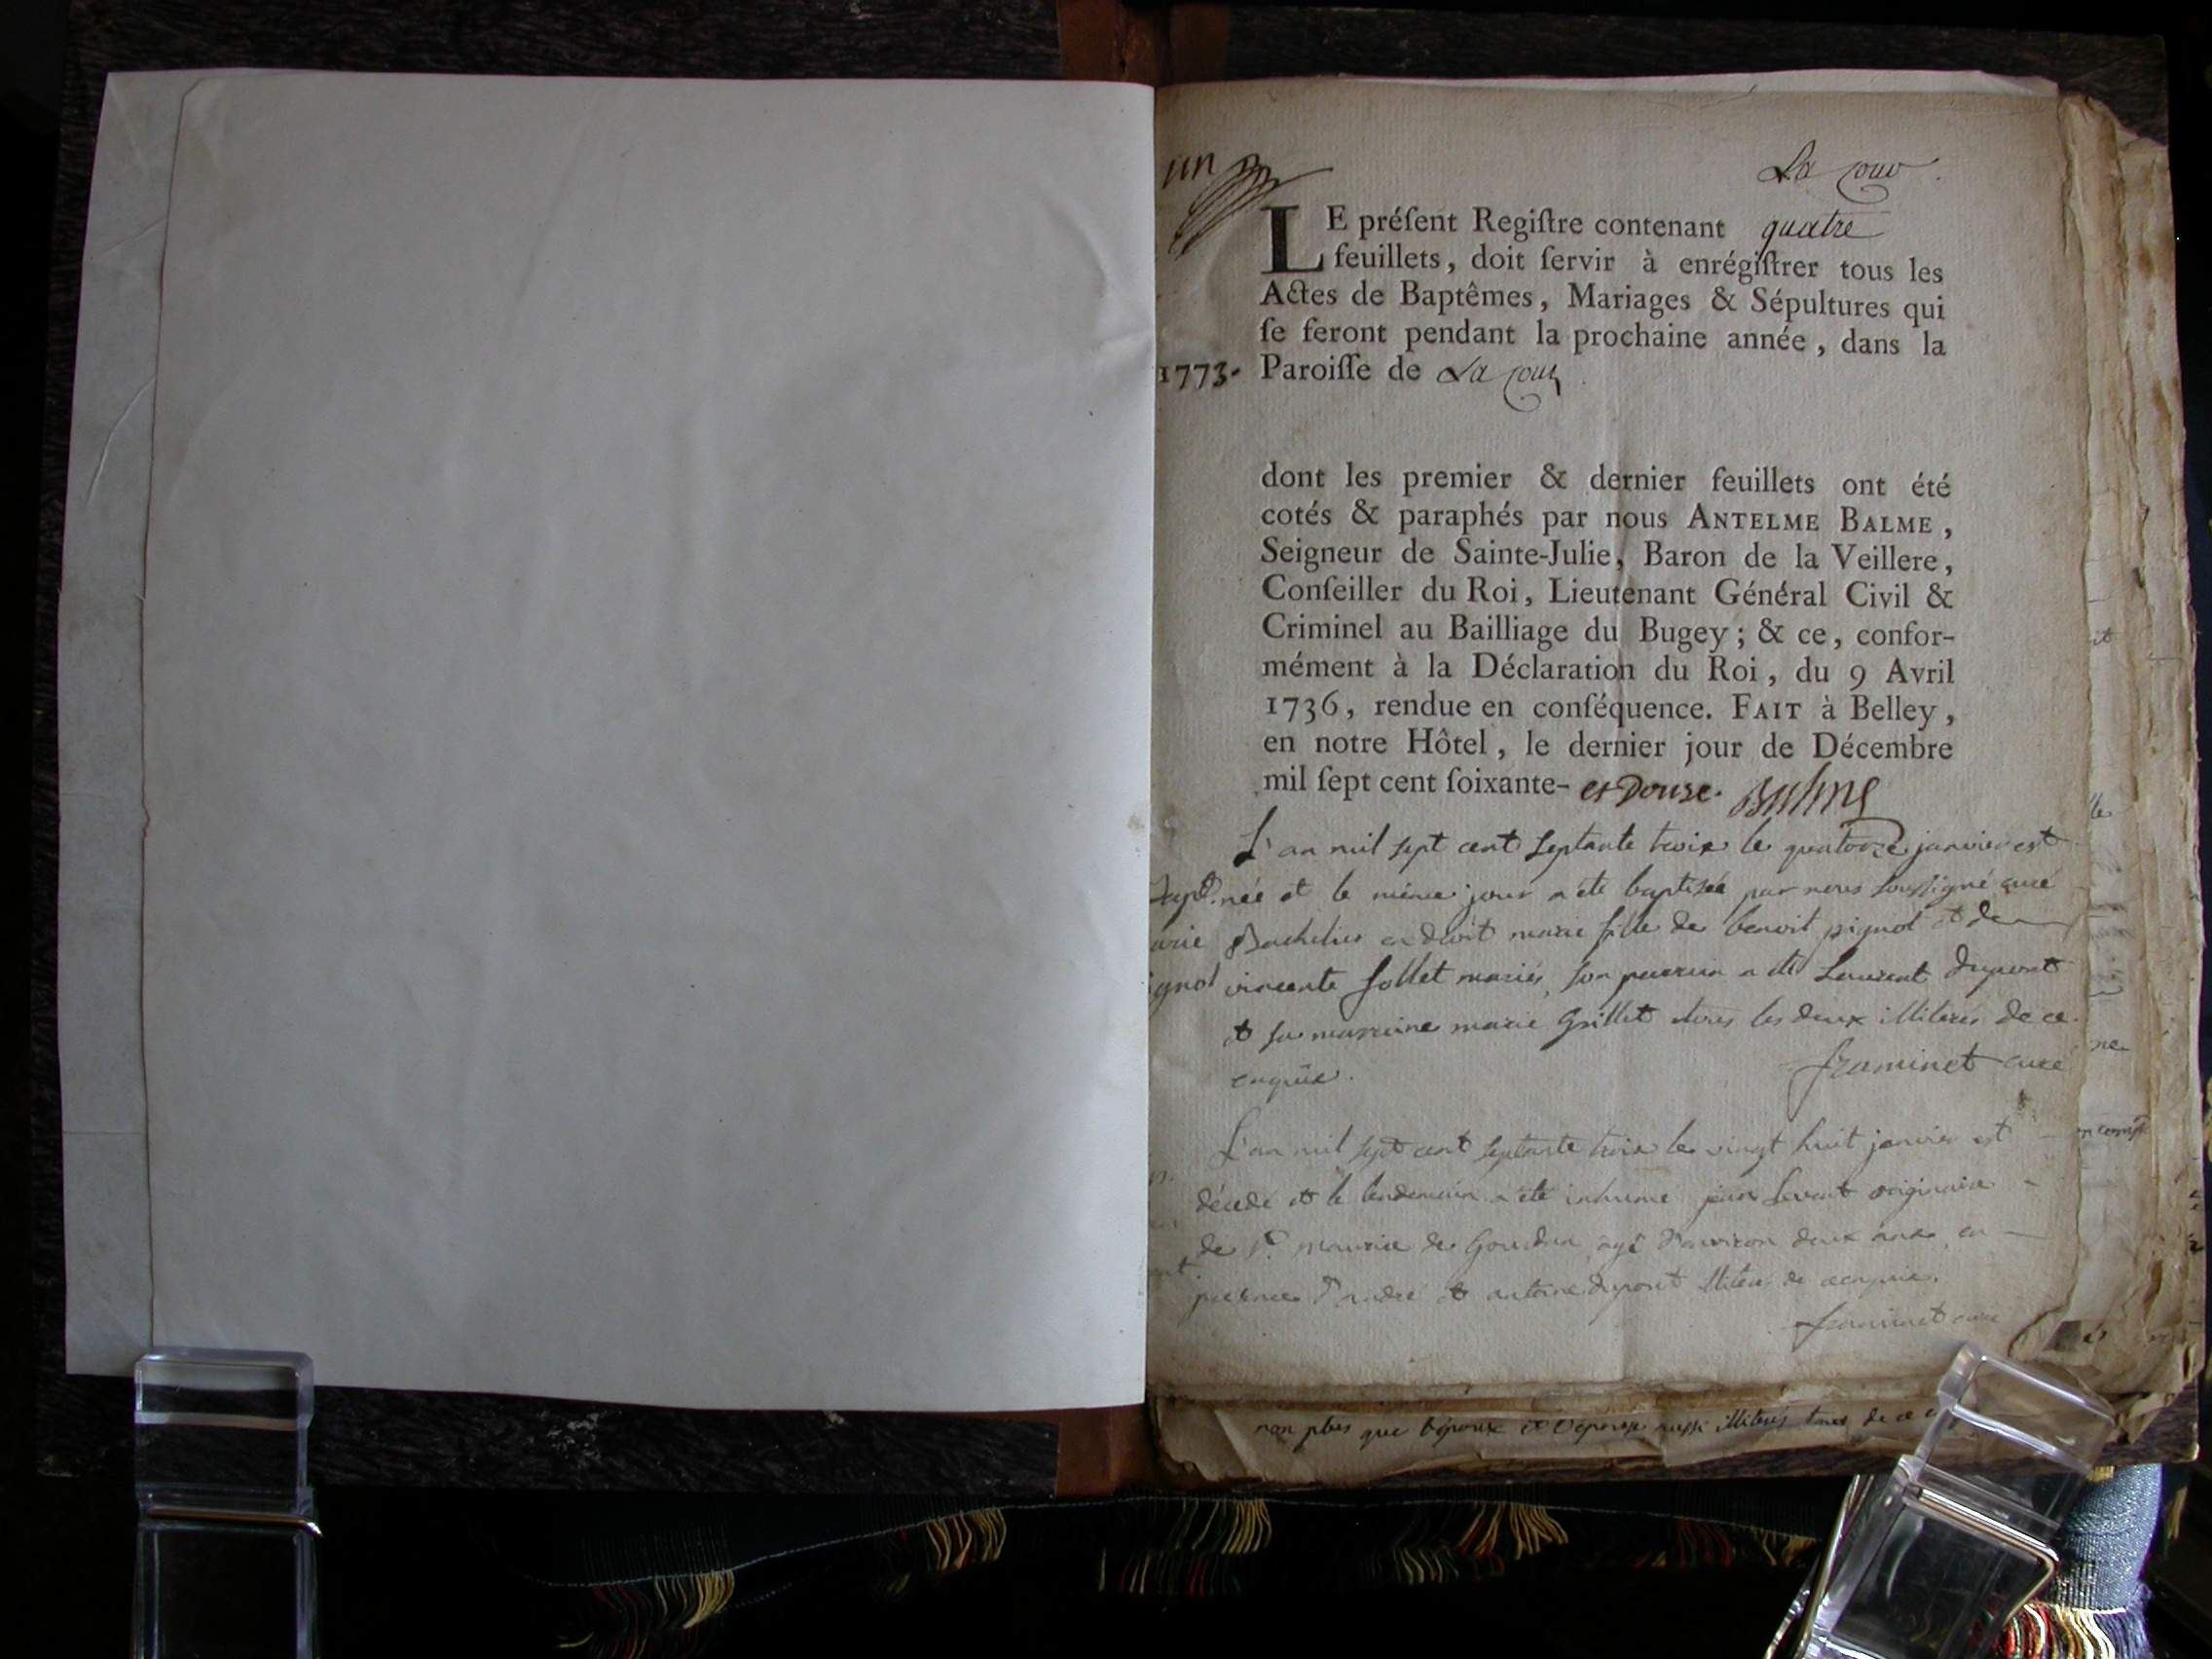 un
La Cour.
LE préſent Regiſtre contenant quatre
feuillets, doit ſervir à enrégiſtrer tous les
Actes de Baptêmes, Mariages & Sépultures qui
ſe feront pendant la prochaine année, dans la
1773. Paroiſſe de La Cour
dont les premier & dernier feuillets ont été
cotés & paraphés par nous ANTELME BALME,
Seigneur de Sainte-Julie, Baron de la Veillere,
Conſeiller du Roi, Lieutenant Général Civil &
Criminel au Bailliage du Bugey; & ce, confor-
mément à la Déclaration du Roi, du 9 Avril
1736, rendue en conſéquence. FAIT à Belley,
en notre Hôtel, le dernier jour de Décembre
mil ſept cent ſoixante- et Douze. Balme
L'an mil sept cent septante trois le quatorze janvier est
née et le même jour a été baptisée par nous soussigné curé
marie fille de benoit pignol et de
vincente follet mariés, son parrain a été Laurent dupont
et sa marraine marie Grillet tous les deux illiterés de ce
enquis. framinet curé
L'an mil sept cent septante trois le vingt huit janvier est
décédé et le lendemain a été inhumé originaire
de St. maurice de Gourdan, agé d'environ deux ans, en
presence d'andré et antoine dupont illiterés de ce enquis.
framinet curé
non plus que l'époux et l'épouse aussi illiterés tous de ce